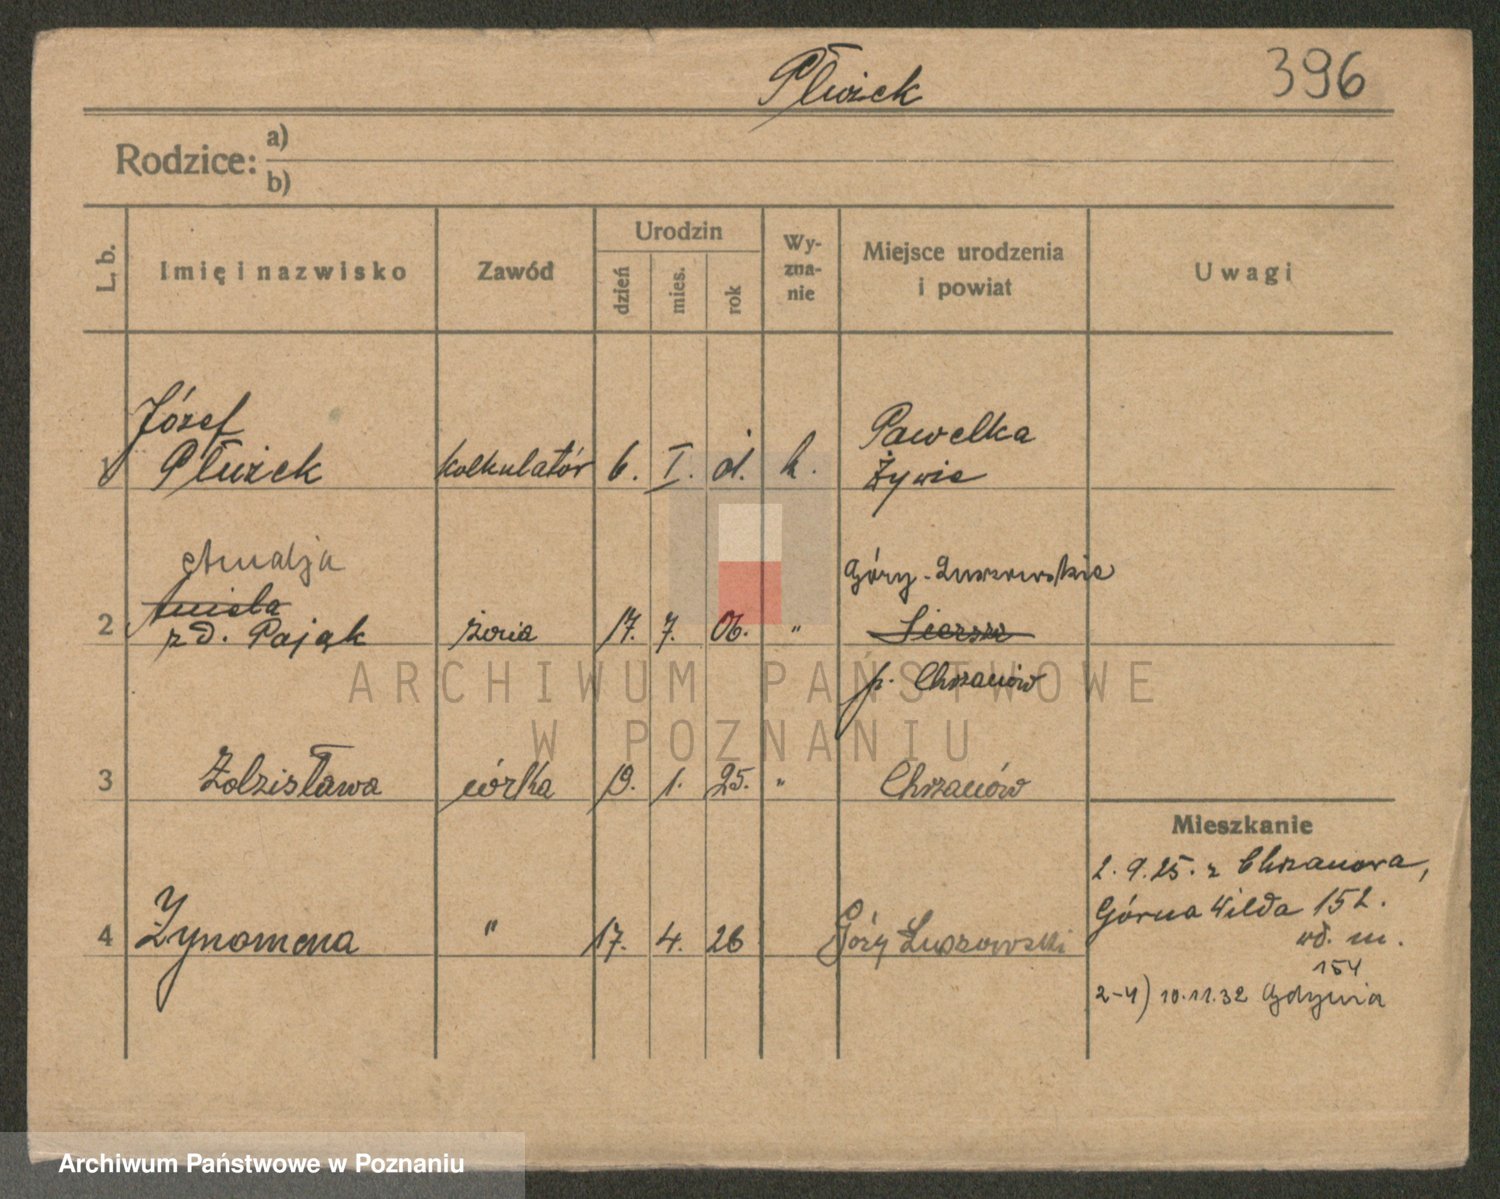 Płużek
396
Rodzice:
a)
b)
L. b.
Imię i nazwisko
Zawód
Urodzin
dzień
mies.
rok
Wy-
zna-
nie
Miejsce urodzenia
i powiat
Uwagi
1
Józef
Płużek
kolkulatór
6. I.
k.
Pawelka
Żywie
2
Amalja
Aniela
zd. Pająk
żona
17. 7. 06.
"
Góry-Luszowskie
Siersza
p. Chrzanów
3
Zdzisława
córka
19. 1. 25.
"
Chrzanów
4
Zynomena
"
17. 4. 26
Góry Luszowski
Mieszkanie
2.9.25. z Chrzanowa,
Górna Wilda 152.
od. m.
154
2-4) 10.11.32 Gdynia
ARCHIWUM PAŃSTWOWE
W POZNANIU
Archiwum Państwowe w Poznaniu